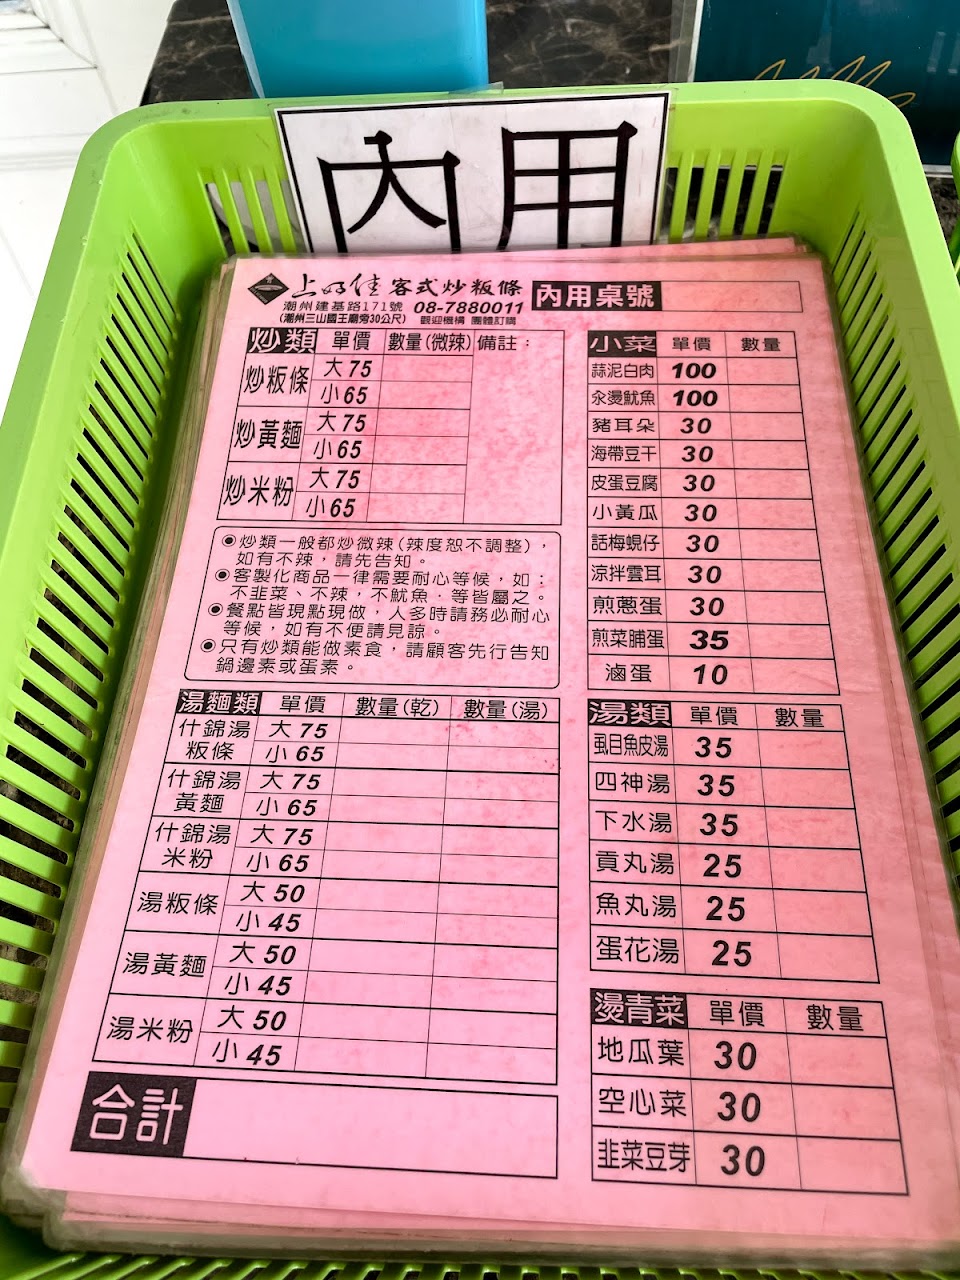 內用
上好佳 客式炒粄條
潮州建基路171號 08-7880011
(潮州三山國王廟旁30公尺) 歡迎機構 團體訂購
內用桌號
炒類 單價 數量(微辣) 備註：
炒粄條 大75
小65
炒黃麵 大75
小65
炒米粉 大75
小65
◉炒類一般都炒微辣(辣度恕不調整)，
如有不辣，請先告知。
◉客製化商品一律需要耐心等候，如：
不韭菜、不辣，不魷魚．等皆屬之。
◉餐點皆現點現做，人多時請務必耐心
等候，如有不便請見諒。
◉只有炒類能做素食，請顧客先行告知
鍋邊素或蛋素。
湯麵類 單價 數量(乾) 數量(湯)
什錦湯粄條 大75
小65
什錦湯黃麵 大75
小65
什錦湯米粉 大75
小65
湯粄條 大50
小45
湯黃麵 大50
小45
湯米粉 大50
小45
合計
小菜 單價 數量
蒜泥白肉 100
永燙魷魚 100
豬耳朵 30
海帶豆干 30
皮蛋豆腐 30
小黃瓜 30
話梅蜆仔 30
涼拌雲耳 30
煎蔥蛋 30
煎菜脯蛋 35
滷蛋 10
湯類 單價 數量
虱目魚皮湯 35
四神湯 35
下水湯 35
貢丸湯 25
魚丸湯 25
蛋花湯 25
燙青菜 單價 數量
地瓜葉 30
空心菜 30
韭菜豆芽 30